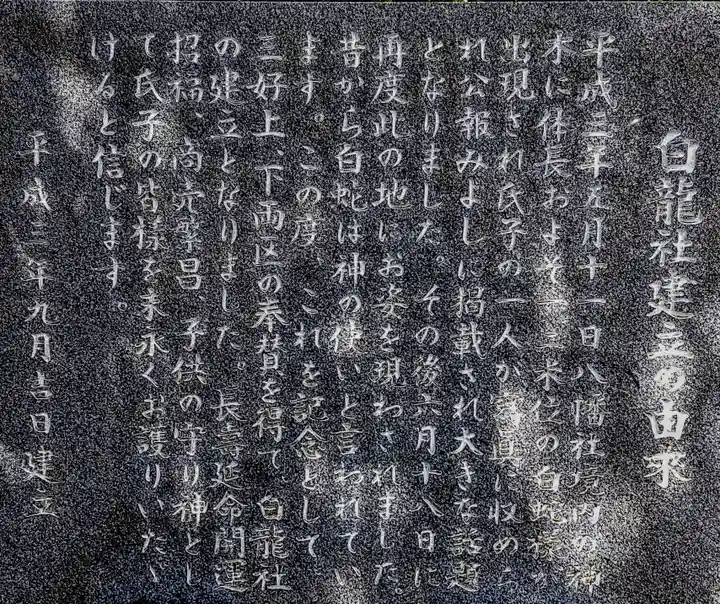 白龍社建立の由来
平成三年五月十一日八幡社境内の神
木に体長およそ一三米位の白蛇様が
出現され氏子の一人が写真に収めら
れ公報みよしに掲載され大きな話題
となりました。その後六月十八日に
再度此の地にお姿を現わされました。
昔から白蛇は神の使いと言われてい
ます。この度、これを記念として
三好上、下両区の奉賛を得て、白龍社
の建立となりました。長寿延命開運
招福、商売繁昌、子供の守り神とし
て氏子の皆様を末永くお護りいただ
けると信じます。
平成三年九月吉日建立